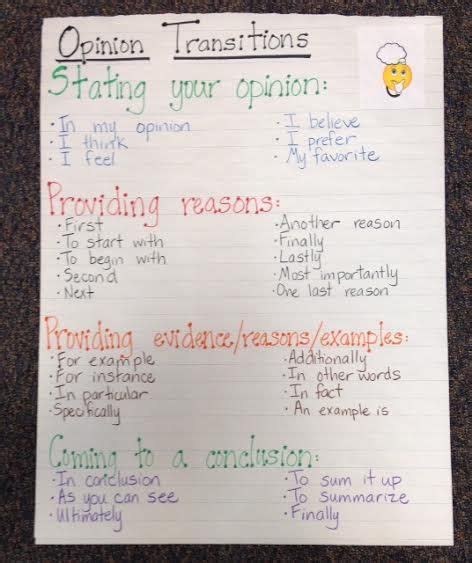 Opinion Transitions
Stating your opinion:
· In my opinion
· I think
· I feel
· I believe
· I prefer
· My favorite
Providing reasons:
· First
· To start with
· To begin with
· Second
· Next
· Another reason
· Finally
· Lastly
· Most importantly
· One last reason
Providing evidence/reasons/examples:
· For example
· For instance
· In particular
· Specifically
· Additionally
· In other words
· In fact
· An example is
Coming to a conclusion:
· In conclusion
· As you can see
· Ultimately
· To sum it up
· To summarize
· Finally